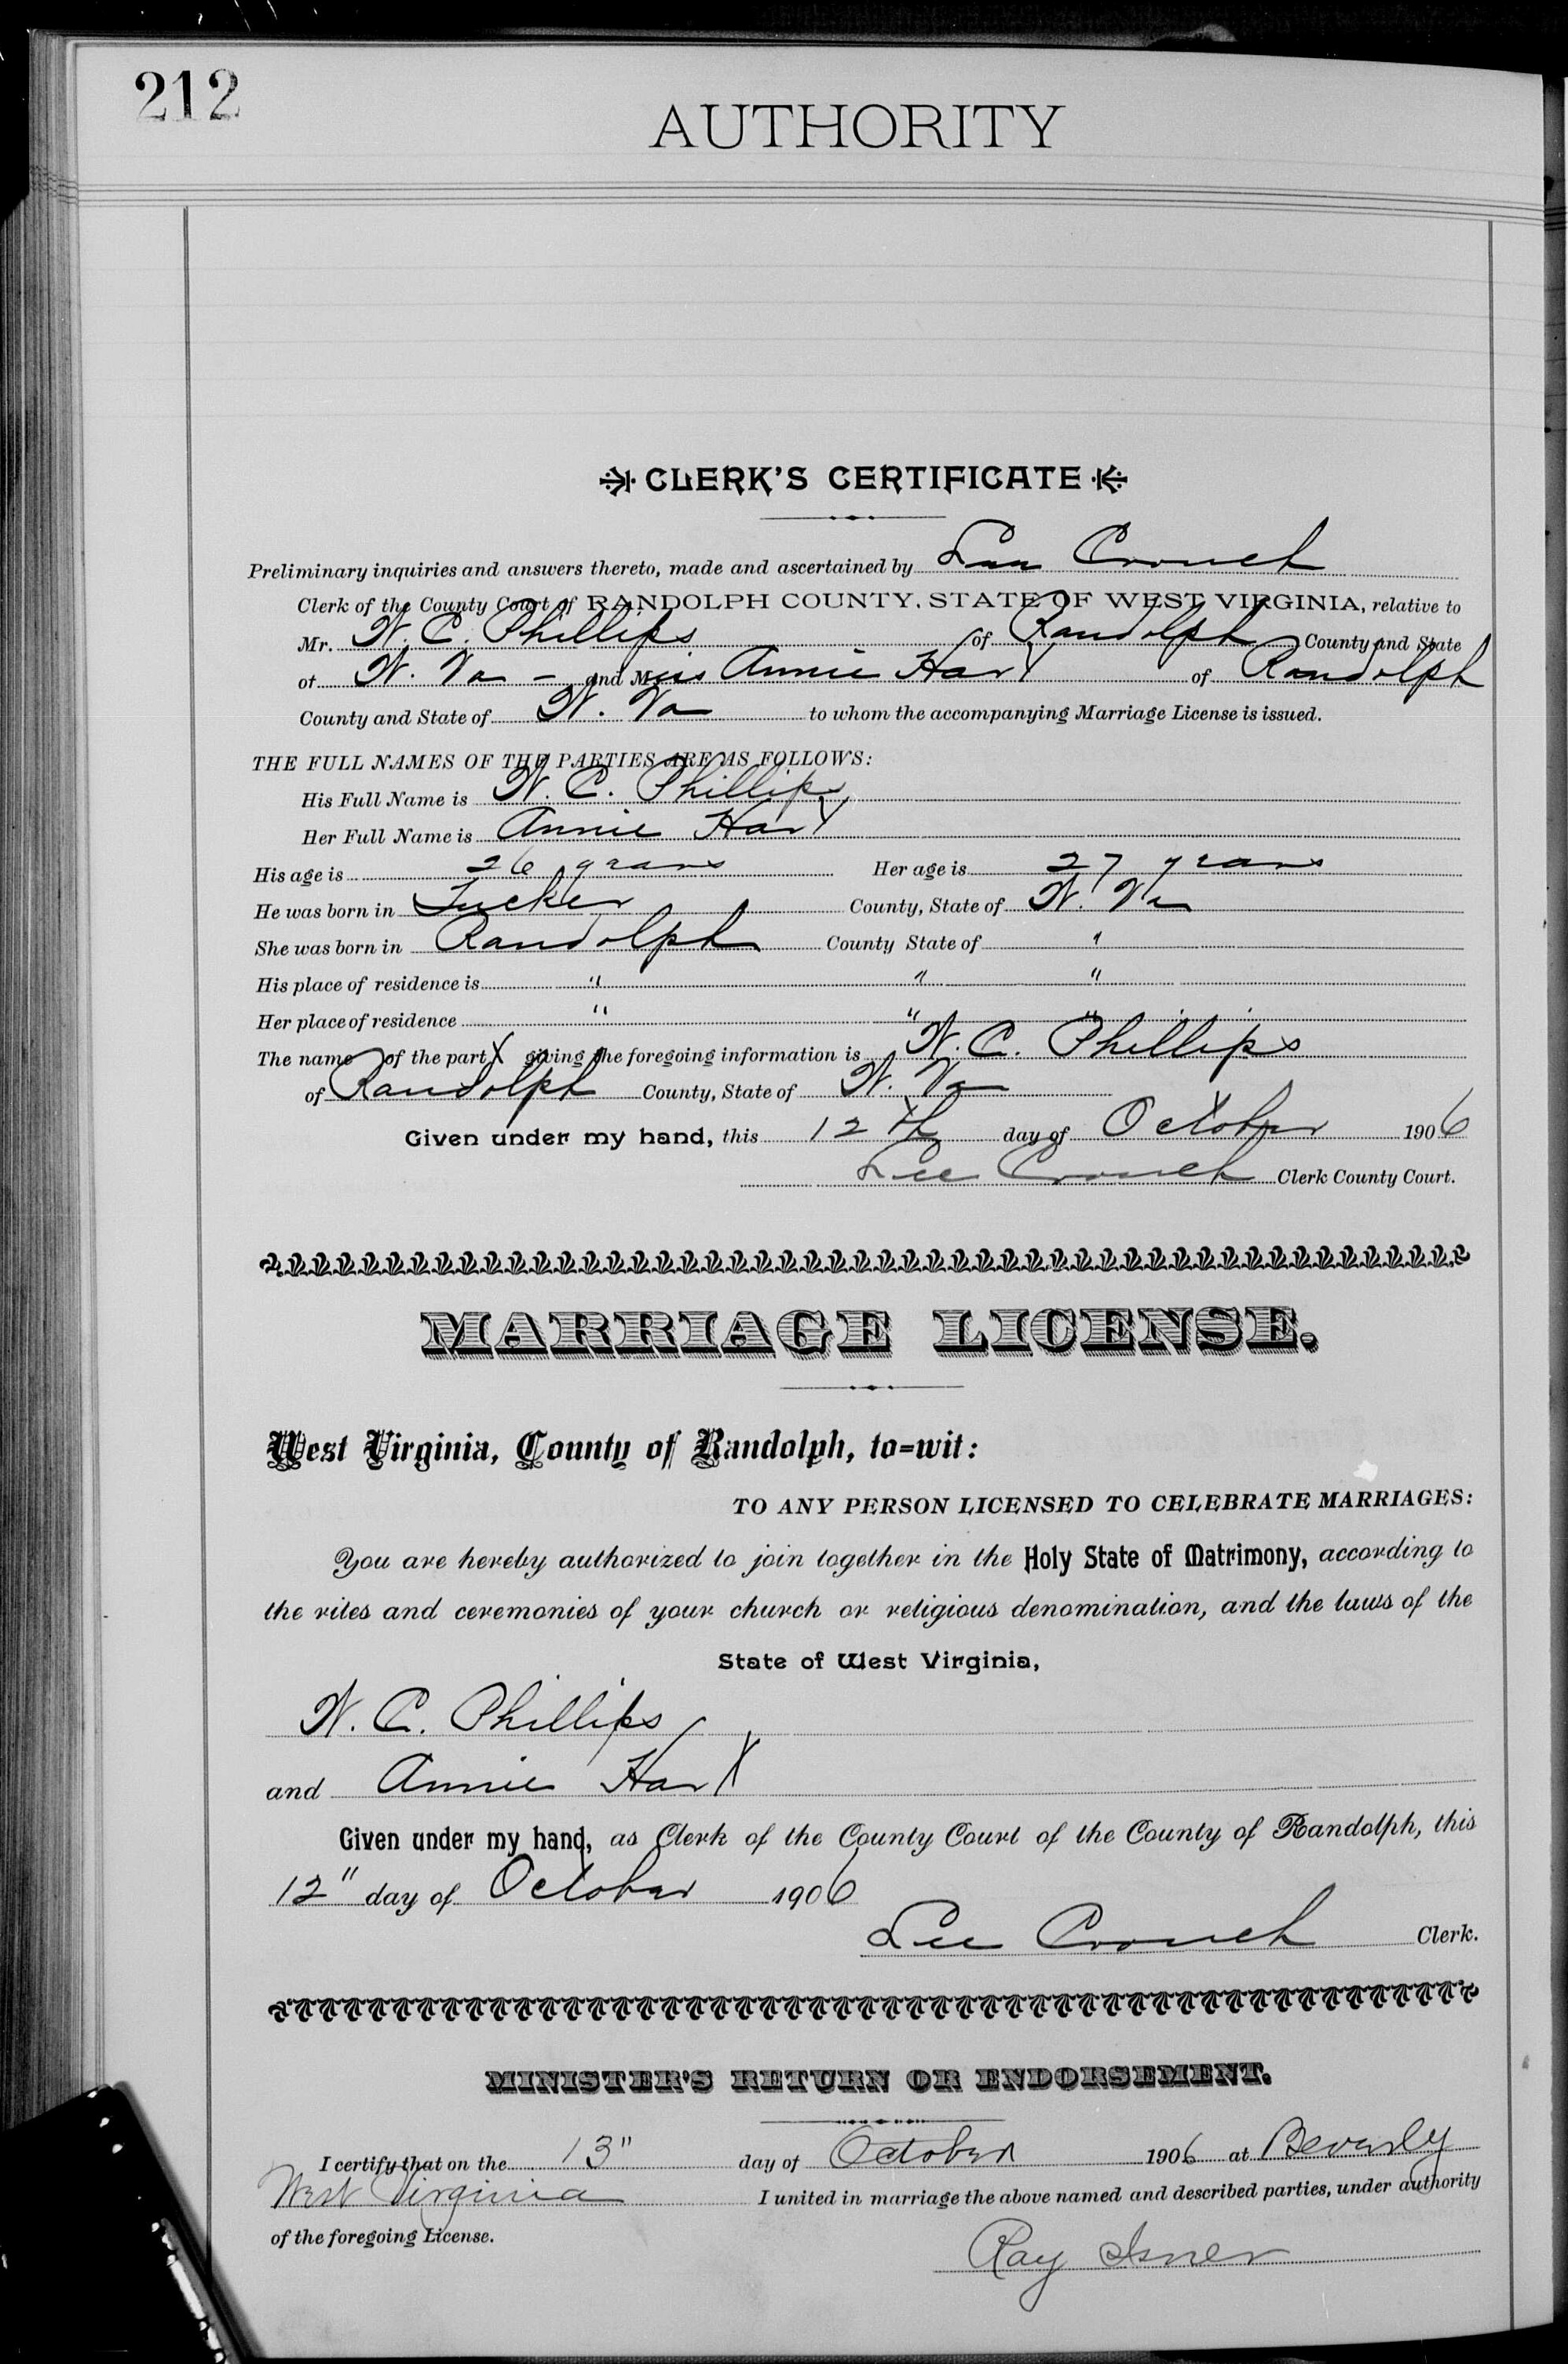 212
AUTHORITY
CLERK'S CERTIFICATE
Preliminary inquiries and answers thereto, made and ascertained by Lee Crouch
Clerk of the County Court of RANDOLPH COUNTY, STATE OF WEST VIRGINIA, relative to
Mr. W. C. Phillips of Randolph County and State
of W. Va - and Miss Annie Hart of Randolph
County and State of W. Va to whom the accompanying Marriage License is issued.
THE FULL NAMES OF THE PARTIES ARE AS FOLLOWS:
His Full Name is W. C. Phillips
Her Full Name is Annie Hart
His age is 26 years Her age is 27 years
He was born in Tucker County, State of W. Va
She was born in Randolph County State of "
His place of residence is " " "
Her place of residence " " "
The name of the party giving the foregoing information is W. C. Phillips
of Randolph County, State of W. Va
Given under my hand, this 12th day of October 1906
Lee Crouch Clerk County Court.
MARRIAGE LICENSE.
West Virginia, County of Randolph, to=wit:
TO ANY PERSON LICENSED TO CELEBRATE MARRIAGES:
You are hereby authorized to join together in the Holy State of Matrimony, according to
the rites and ceremonies of your church or religious denomination, and the laws of the
State of West Virginia,
W. C. Phillips
and Annie Hart
Given under my hand, as Clerk of the County Court of the County of Randolph, this
12" day of October 1906
Lee Crouch Clerk.
MINISTER'S RETURN OR ENDORSEMENT.
I certify that on the 13" day of October 1906 at Beverly
West Virginia I united in marriage the above named and described parties, under authority
of the foregoing License.
Ray Isner